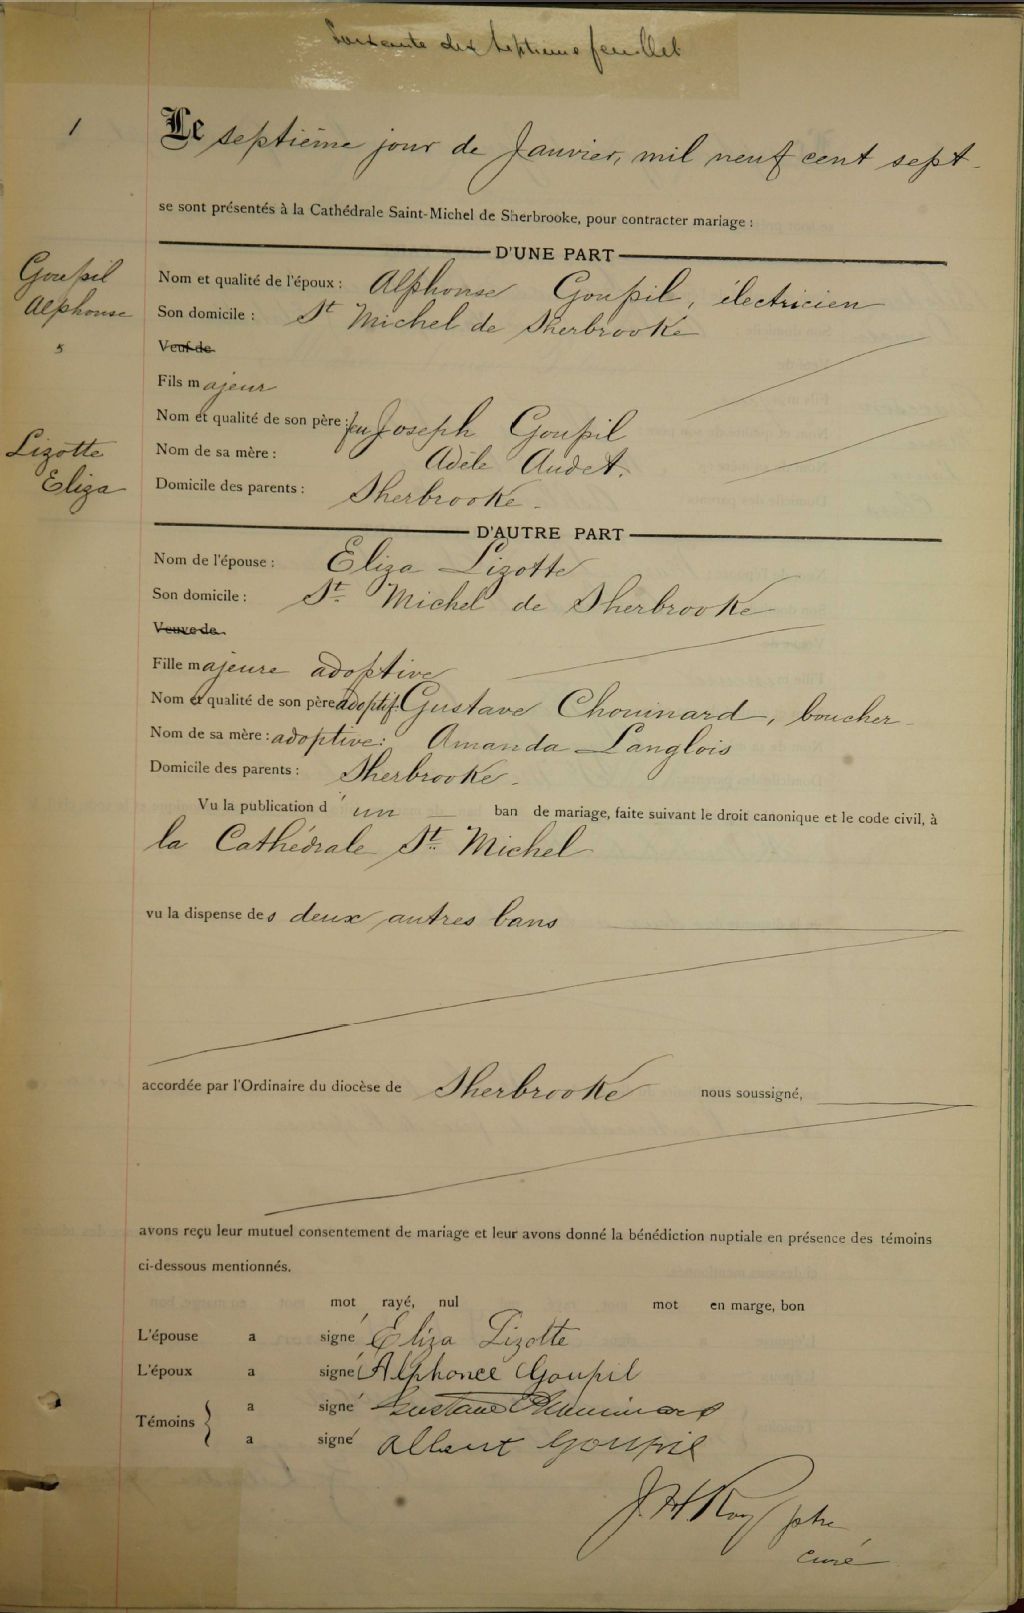 Soixante dix septieme feuillet
1
Le septième jour de Janvier, mil neuf cent sept-
se sont présentés à la Cathédrale Saint-Michel de Sherbrooke, pour contracter mariage :
D'UNE PART
Goupil
Alphonse
5
Nom et qualité de l'époux : Alphonse Goupil, électricien
Son domicile : St Michel de Sherbrooke
Veuf de
Fils majeur
Nom et qualité de son père : feu Joseph Goupil
Lizotte
Eliza
Nom de sa mère : Adèle Audet.
Domicile des parents : Sherbrooke -
D'AUTRE PART
Nom de l'épouse : Eliza Lizotte
Son domicile : St. Michel de Sherbrooke
Veuve de
Fille majeure adoptive
Nom et qualité de son père adoptif: Gustave Chouinard, boucher-
Nom de sa mère : adoptive: Amanda Langlois
Domicile des parents : Sherbrooke -
Vu la publication d'un ban de mariage, faite suivant le droit canonique et le code civil, à
la Cathédrale St. Michel
vu la dispense des deux autres bans
accordée par l'Ordinaire du diocèse de Sherbrooke nous soussigné,
avons reçu leur mutuel consentement de mariage et leur avons donné la bénédiction nuptiale en présence des témoins
ci-dessous mentionnés.
mot rayé, nul mot en marge, bon
L'épouse a signé Eliza Lizotte
L'époux a signé Alphonce Goupil
Témoins
a signé Gustave Chouinard
a signé Albert Goupil
J. H. Roy ptre
curé